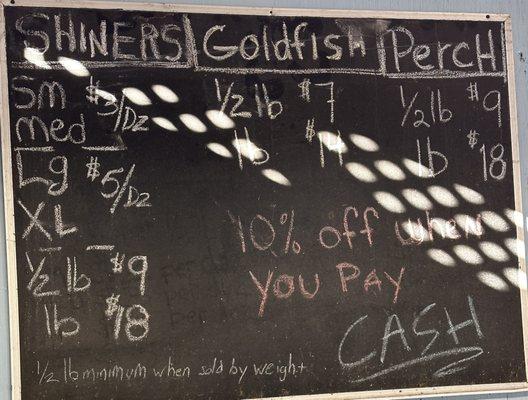 SHINERS Goldfish Perch
Sm $3/Dz 1/2 lb $7 1/2 lb $9
med lb $14 lb $18
Lg $5/Dz
XL
1/2 lb $9
lb $18
10% off when
You Pay
CASH
1/2 lb minimum when sold by weight